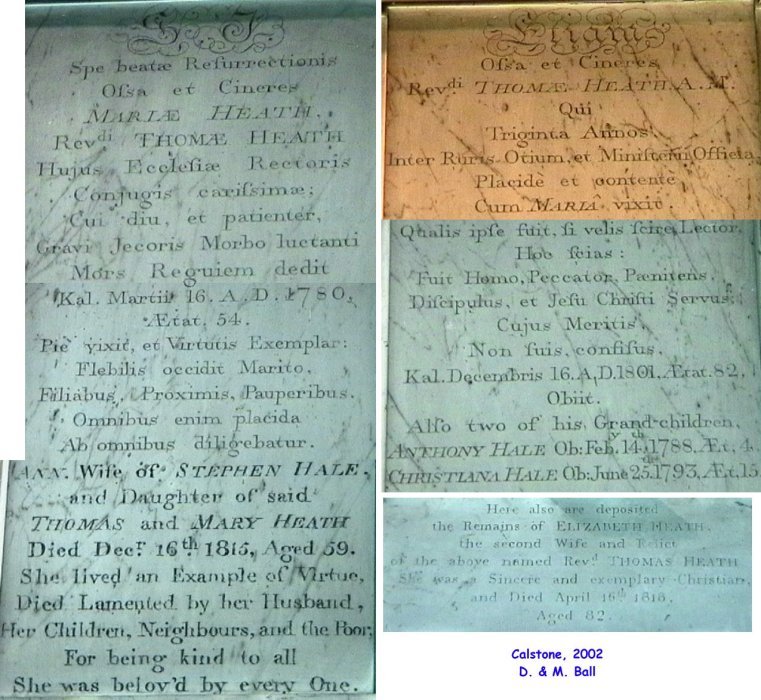 S. I.
Spe beatæ Reſurrectionis
Oſsa et Cineres
MARIÆ HEATH.
Revdi THOMÆ HEATH
Hujus Eccleſiæ Rectoris
Conjugis cariſsimæ;
Cui diu, et patienter,
Gravi Jecoris Morbo luctanti
Mors Requiem dedit
Kal. Martii 16. A. D. 1780,
Ætat. 54.
Piè vixit, et Virtutis Exemplar:
Flebilis occidit Marito,
Filiabus, Proximis, Pauperibus.
Omnibus enim placida
Ab omnibus diligebatur.
ANN. Wife of STEPHEN HALE,
and Daughter of said
THOMAS and MARY HEATH
Died Decr 16th 1815, Aged 59.
She lived an Example of Virtue,
Died Lamented by her Husband,
Her Children, Neighbours, and the Poor,
For being kind to all
She was belov'd by every One.
Etiam
Oſsa et Cineres
Revdi THOMÆ HEATH. A. M.
Qui
Triginta Annos
Inter Ruris Otium, et Miniſterii Officia,
Placidè et contente,
Cum MARIÂ vixit.
Qualis ipſe fuit, ſi velis ſcire, Lector,
Hoc ſcias:
Fuit Homo, Peccator, Pænitens,
Diſcipulus, et Jeſu Chriſti Servus;
Cujus Meritis,
Non ſuis, confiſus,
Kal. Decembris 16. A.D. 1801. Ætat. 82.
Obiit.
Alſo two of his Grand-children,
ANTHONY HALE Ob: Feb. 14th 1788. Æt. 4.
CHRISTIANA HALE Ob: June 25th 1793, Æt. 15
Here also are deposited
the Remains of ELIZABETH HEATH,
the second Wife and Relict
of the above named Revd THOMAS HEATH
She was a Sincere and exemplary Christian,
and Died April 16th 1818.
Aged 82.
Calstone, 2002
D. & M. Ball